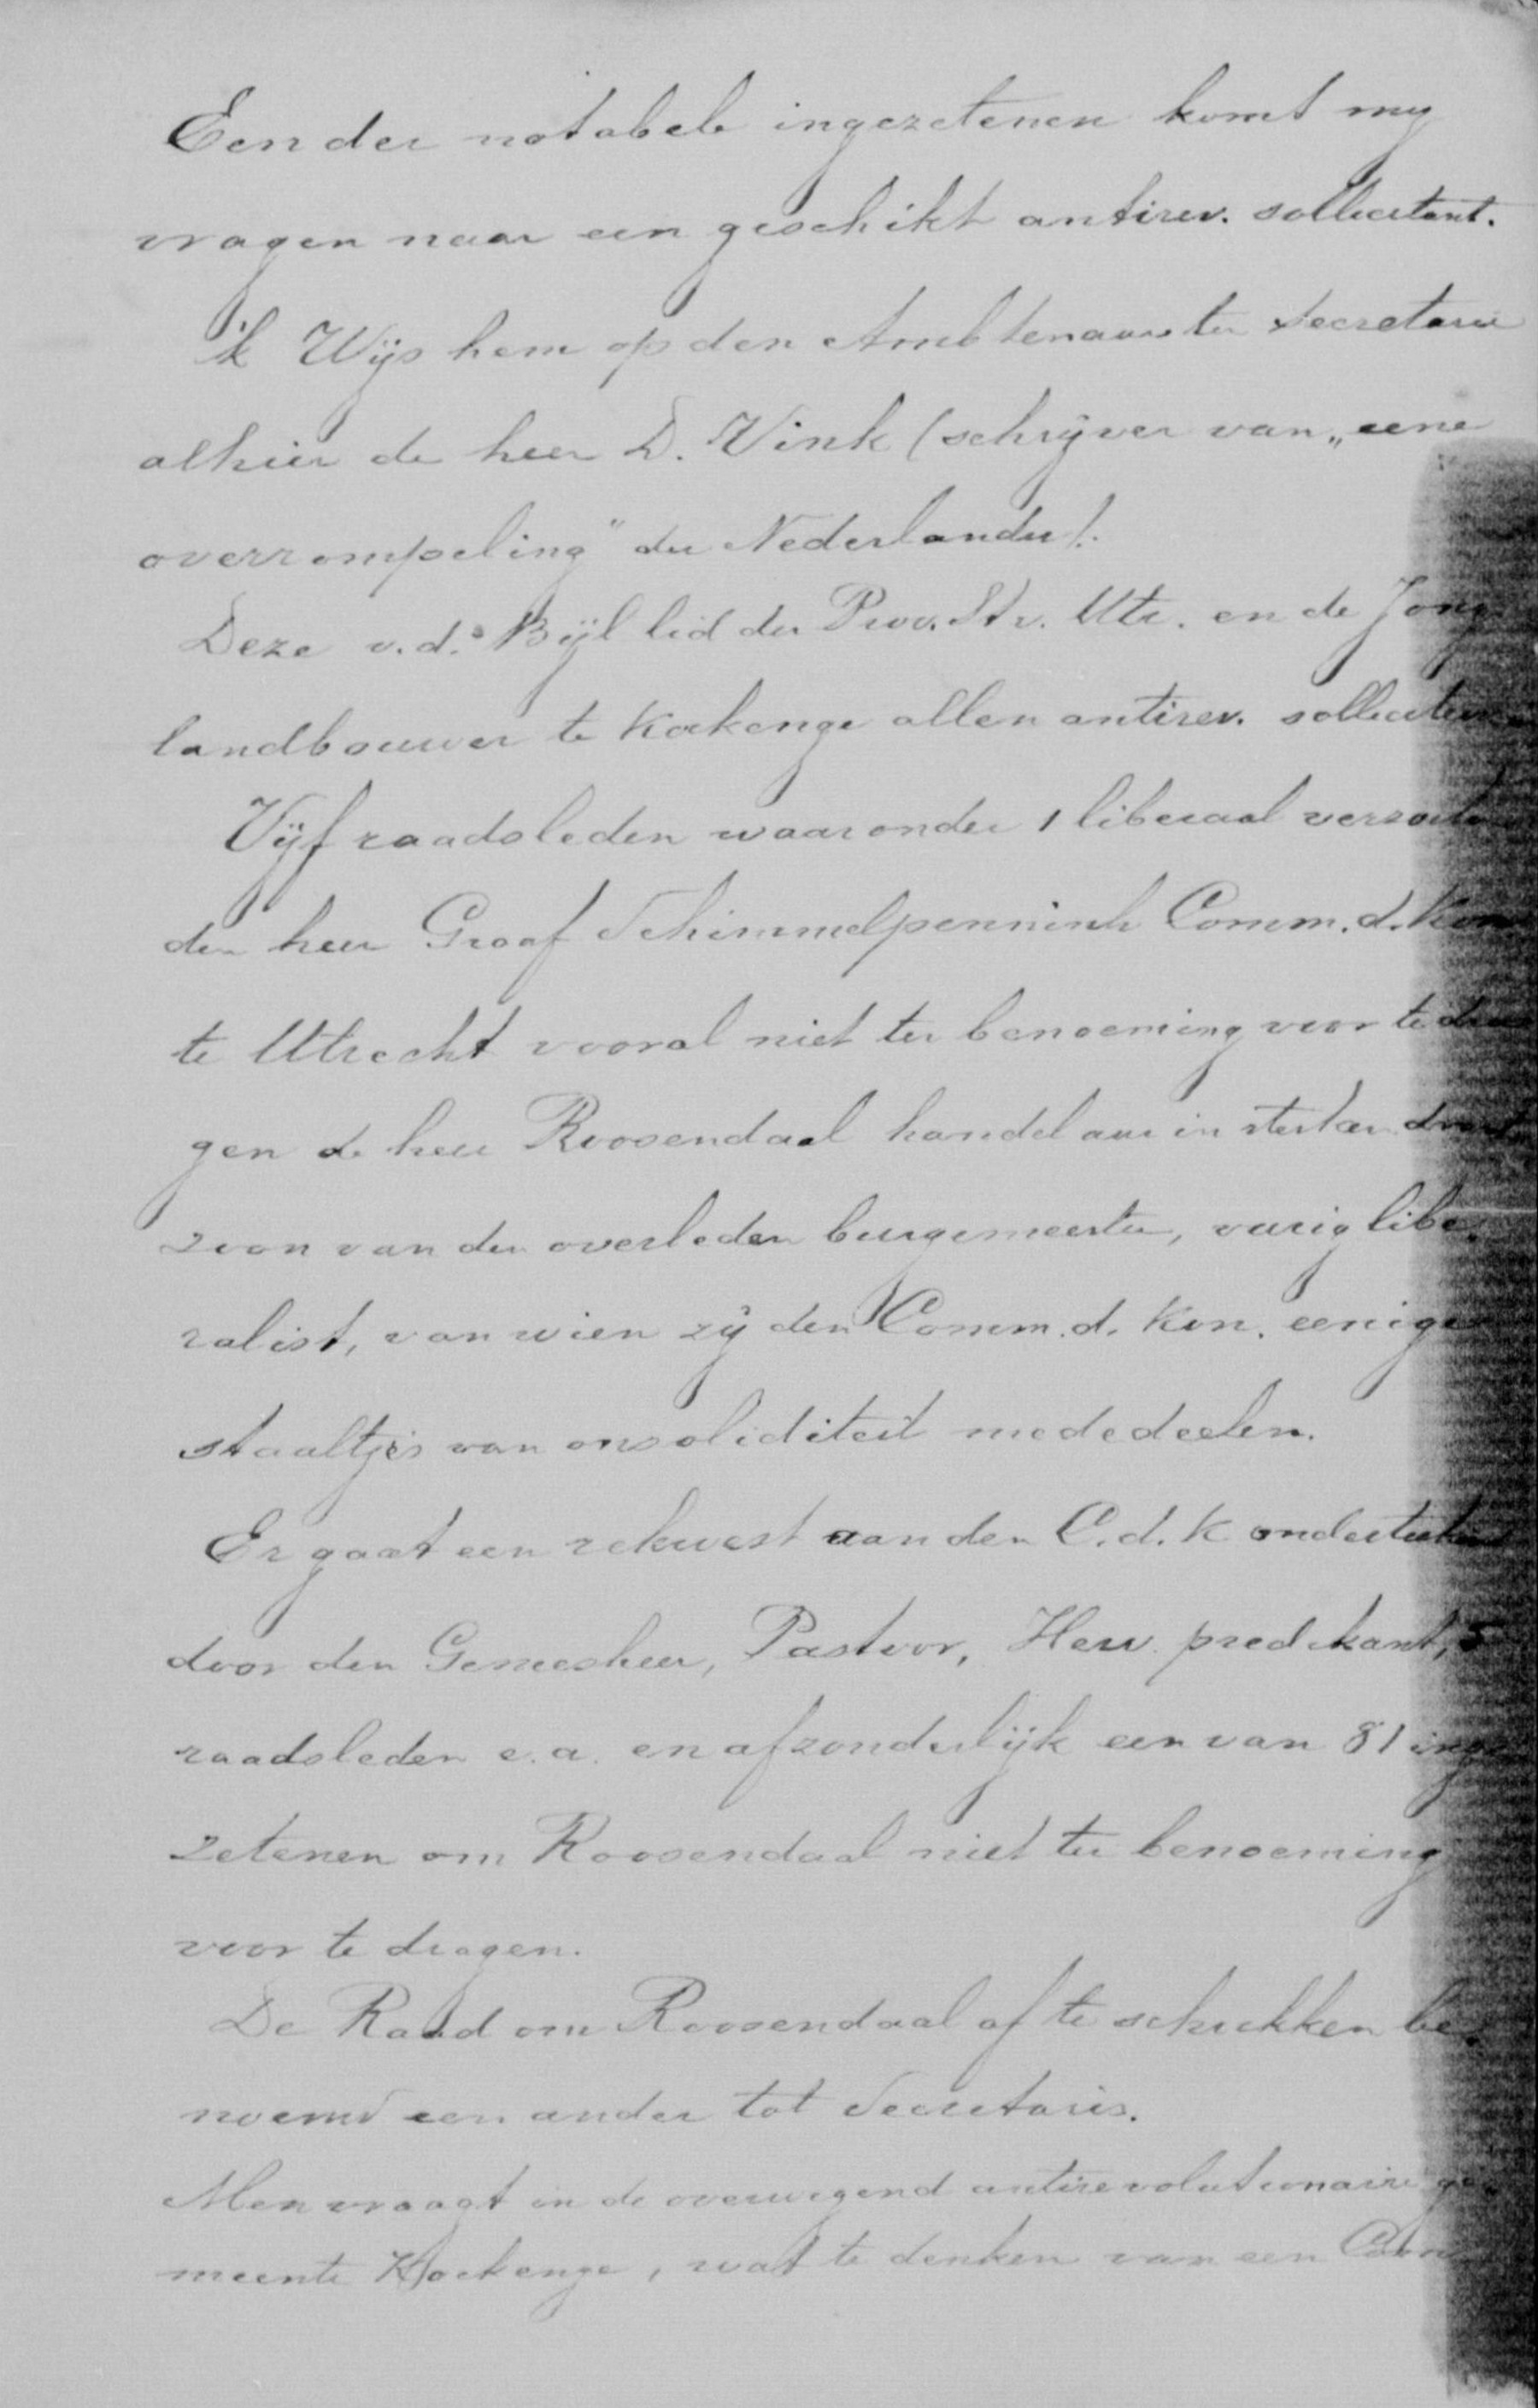 Een der notabele ingezetenen komt mij
vragen naar een geschikt antirev. sollicitant.
ik Wijs hem op den Ambtenaar ter Secretarie
alhier de heer D. Vink (schrijver van „eene
overrompeling" der Nederlander).
Deze v.d. Bijl lid der Prov. St. v. Utr. en de Jong
landbouwer te Kockenge allen antirev. solliciteren
Vijf raadsleden waaronder 1 liberaal verzoeken
den heer Graaf Schimmelpenninck Comm. d. Kon.
te Utrecht vooral niet ter benoeming voor te dra
gen de heer Roosendaal handelaar in sterken drank
zoon van den overleden burgemeester, vurig libe-
ralist, van wien zij den Comm. d. Kon. eenige
staaltjes van onsoliditeit mededeelen.
Er gaat een rekwest aan den C. d. K onderteekend
door den Geneesheer, Pastoor, Herv. predikant, 5
raadsleden e.a. en afzonderlijk een van 81 inge
zetenen om Roosendaal niet ter benoeming
voor te dragen.
De Raad om Roosendaal af te schrikken be-
noemd een ander tot Secretaris.
Men vraagt in de overwegend antirevolutionaire ge-
meente Kockenge, wat te denken van een Com